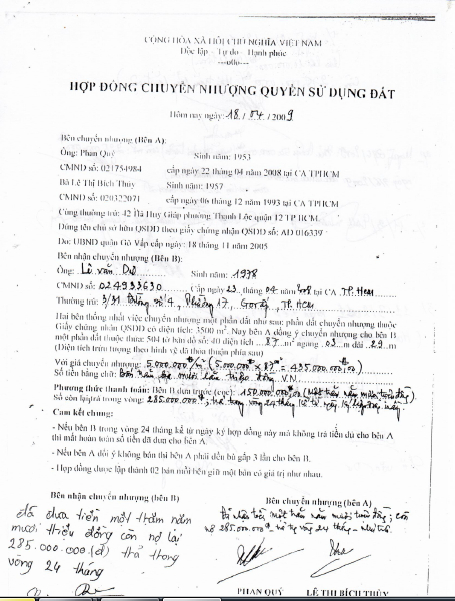 CỘNG HÒA XÃ HỘI CHỦ NGHĨA VIỆT NAM
Độc lập - Tự do - Hạnh phúc
---o0o---
HỢP ĐỒNG CHUYỂN NHƯỢNG QUYỀN SỬ DỤNG ĐẤT
Hôm nay ngày: 18 / 04 / 2009
Bên chuyển nhượng (Bên A):
Ông: Phan Quý Sinh năm: 1953
CMND số: 021754984 cấp ngày 22 tháng 04 năm 2008 tại CA TPHCM
Bà Lê Thị Bích Thủy Sinh năm: 1957
CMND số: 020322071 cấp ngày 06 tháng 12 năm 1993 tại CA TPHCM
Cùng thường trú: 42 Hà Huy Giáp phường Thạnh Lộc quận 12 TP HCM.
Đứng tên chủ sở hữu QSDĐ theo giấy chứng nhận QSDĐ số: AD 016339
Do: UBND quận Gò Vấp cấp ngày: 18 tháng 11 năm 2005
Bên nhận chuyển nhượng (Bên B):
Ông: Lê Văn Dự Sinh năm: 1978
CMND số: 024933630 Cấp ngày 23 tháng 04 năm 2008 tại CA TP. HCM
Thường trú: 3/31 đường số 4, Phường 17, Gò Vấp, TP. HCM
Hai bên thống nhất việc chuyển nhượng một phần đất như sau: phần đất chuyển nhượng thuộc
Giấy chứng nhận QSDĐ có diện tích: 3500 m². Nay bên A đồng ý chuyển nhượng cho bên B
một phần đất thuộc thửa: 504 tờ bản đồ số: 40 diện tích ...87 m² ngang 03 m dài 29 m
(Diện tích trên tượng theo hình vẽ đã thỏa thuận phía sau)
Với giá chuyển nhượng: 5.000.000đ/m² (5.000.000đ x 87m² = 435.000.000đ)
Số tiền bằng chữ: Bốn trăm ba mươi lăm triệu đồng V.N
Phương thức thanh toán: Bên B đưa trước (cọc): 150.000.000đ (Một trăm năm mươi triệu đồng)
Số còn lại trả trong vòng: 285.000.000đ; trả trong vòng 24 tháng kể từ ngày ký hợp đồng này.
Cam kết chung:
- Nếu bên B trong vòng 24 tháng kể từ ngày ký hợp đồng này mà không trả tiền đủ cho bên A
thì mất hoàn toàn số tiền đã đưa cho bên A.
- Nếu bên A đổi ý không bán thì bên A phải đền bù gấp 3 lần cho bên B.
- Hợp đồng được lập thành 02 bản mỗi bên giữ một bản có giá trị như nhau.
Bên nhận chuyển nhượng (bên B) Bên chuyển nhượng (bên A)
đã đưa tiền một trăm năm
mươi triệu đồng còn nợ lại
285.000.000 (đ) trả trong
vòng 24 tháng
Đã nhận tiền một trăm năm mươi triệu đồng; còn
nợ 285.000.000đ trả 24 tháng
PHAN QUÝ LÊ THỊ BÍCH THỦY